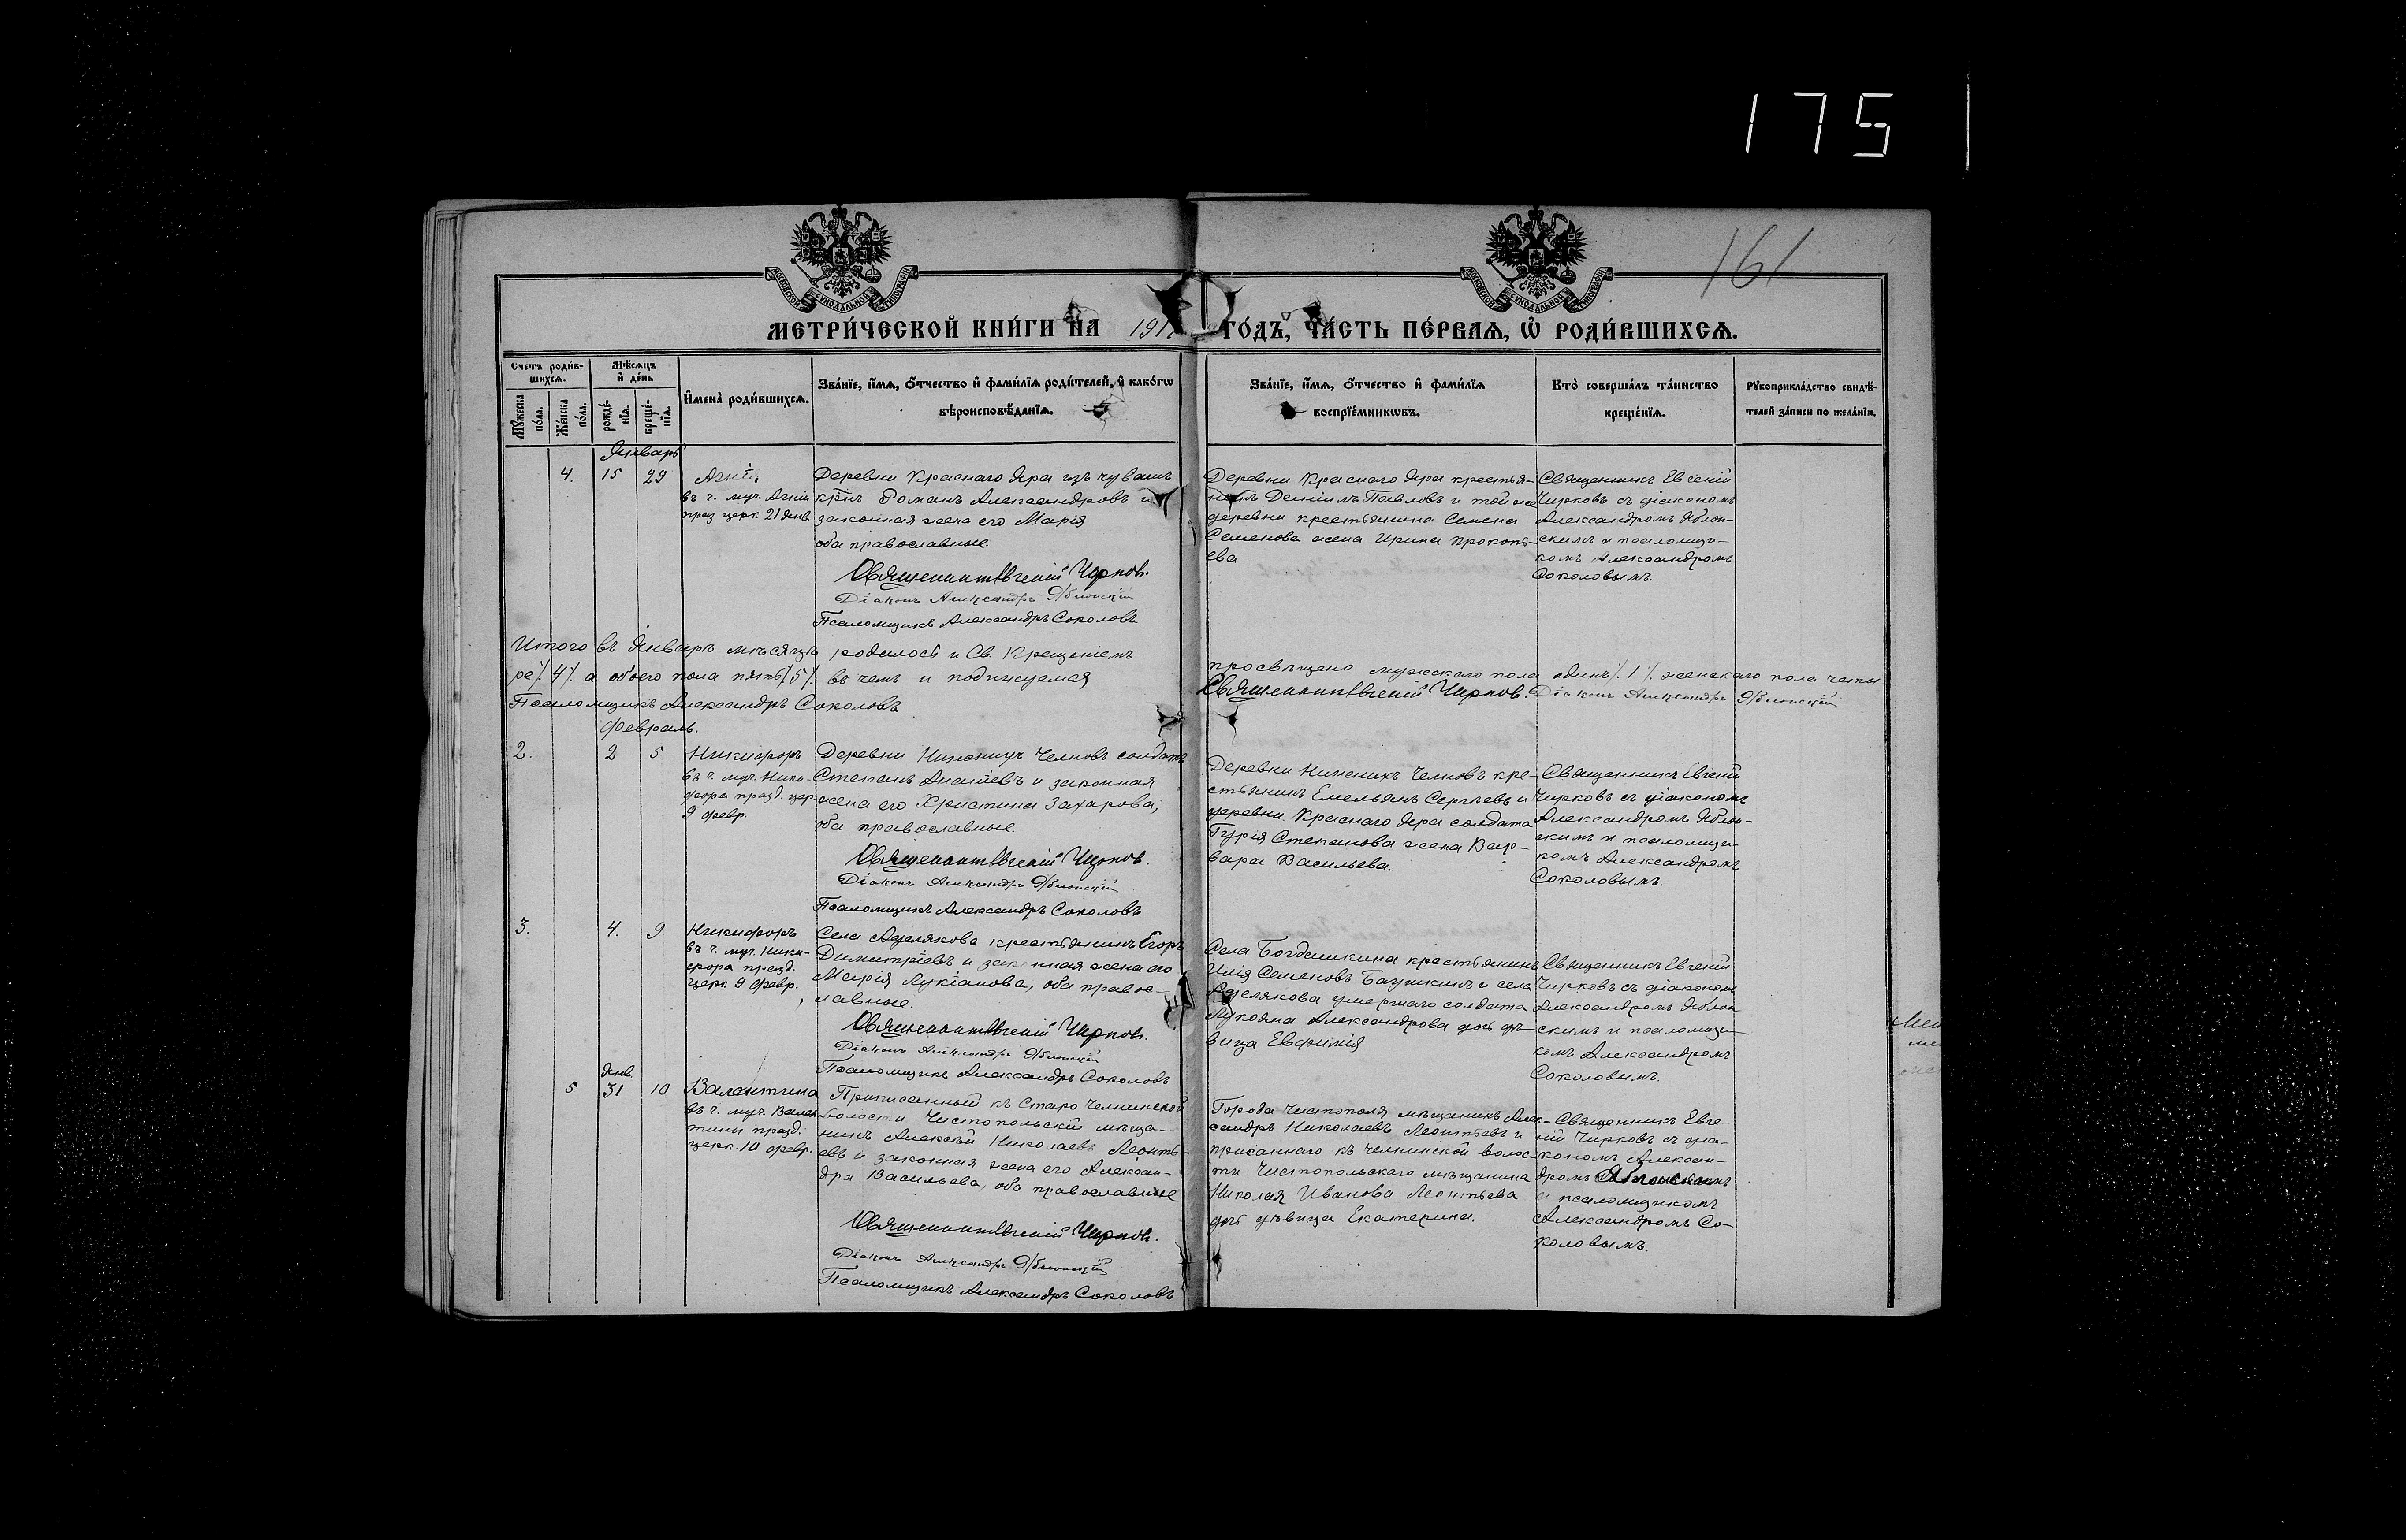 175
161
МОСКОВСКОЙ СѴНОДАЛЬНОЙ ТИПОГРАФІИ
МОСКОВСКОЙ СѴНОДАЛЬНОЙ ТИПОГРАФІИ
МЕТРИ́ЧЕСКОЙ КНИ́ГИ НА 191 ГО́ДЪ, ЧА́СТЬ ПЕ́РВАѦ, Ѡ РОДИ́ВШИХСѦ.
Счетъ роди́вшихсѧ.
Мѣ́сѧцъ и де́нь
Мꙋ́жеска по́ла.
Же́нска по́ла.
рожде́нїѧ.
креще́нїѧ.
И́мена роди́вшихсѧ.
Зва́нїе, и́мѧ, ѻ́тчество и фами́лїѧ роди́телей, и како́гѡ
вѣроисповѣ́данїѧ.
Зва́нїе, и́мѧ, ѻ́тчество и фами́лїѧ
воспрїе́мникѡвъ.
Кто̀ соверша́лъ та́инство
креще́нїѧ.
Рꙋкоприкла́дство свидѣ́-
телей за́писи по жела́нїю.
Январь
4. 15 29
въ ч. муч. Агніи
праз. церк. 21 янв.
Деревни Краснаго Яра изъ чувашъ
крнъ Романъ Александровъ и
законная жена его Марія
оба православные.
Священникъ Евгеній Чирковъ.
Діаконъ Александръ Яблонскій
Псаломщикъ Александръ Соколовъ
Деревни Краснаго Яра крестья-
нинъ Павловъ и той же
деревни крестьянина Семена
Семенова жена Ирина Прокопь-
ева
Священникъ Евгеній
Чирковъ съ діакономъ
Александромъ Яблон-
скимъ и псаломщи-
комъ Александромъ
Соколовымъ.
Итого въ Январѣ мѣсяцѣ родилось и Св. Крещеніемъ
просвѣщено мужскаго пола одинъ /.1/. женскаго пола четы-
ре /.4/. а обоего пола пять /.5/. въ чемъ и подписуемся
Священникъ Евгеній Чирковъ. Діаконъ Александръ Яблонскій
Псаломщикъ Александръ Соколовъ
Февраль.
2. 2 5
Никифоръ
въ ч. муч. Ники-
фора празд. цер.
9 февр.
Деревни Нижнихъ Челновъ солдатъ
Степанъ и законная
жена его Христина Захарова,
оба православные.
Священникъ Евгеній Чирковъ.
Діаконъ Александръ Яблонскій
Псаломщикъ Александръ Соколовъ
Деревни Нижнихъ Челновъ кре-
стьянинъ Емельянъ Сергѣевъ и
деревни Краснаго Яра солдата
Гурія Степанова жена Вар-
вара Васильева.
Священникъ Евгеній
Чирковъ съ діакономъ
Александромъ Яблон-
скимъ и псаломщи-
комъ Александромъ
Соколовымъ.
3. 4. 9
Никифоръ
въ ч. муч. Ники-
фора празд.
церк. 9 февр.
Села Аделякова крестьянинъ Егоръ
Димитріевъ и законная жена его
Марія Лукіанова, оба правос-
лавные.
Священникъ Евгеній Чирковъ.
Діаконъ Александръ Яблонскій
Псаломщикъ Александръ Соколовъ
Села Богдашкина крестьянинъ
Илія Семеновъ и села
Аделякова умершаго солдата
Лукояна Александрова дочь дѣ-
вица Евфимія
Священникъ Евгеній
Чирковъ съ діакономъ
Александромъ Яблон-
скимъ и псаломщи-
комъ Александромъ
Соколовымъ.
Янв.
5 31 10
Валентина
въ ч. муч. Вален-
тины празд.
церк. 10 февр.
Приписанный къ Старо Челнинской
волости Чистопольскій мѣща-
нинъ Алексѣй Николаевъ Леонть-
евъ и законная жена его Алексан-
дра Васильева, оба православные
Священникъ Евгеній Чирковъ.
Діаконъ Александръ Яблонскій
Псаломщикъ Александръ Соколовъ
Города Чистополя мѣщанинъ Алек-
сандръ Николаевъ Леонтьевъ и
приписаннаго къ Челнинской волос-
ти Чистопольскаго мѣщанина
Николая Иванова Леонтьева
дочь дѣвица Екатерина.
Священникъ Евге-
ній Чирковъ съ діа-
кономъ Алексан-
дромъ Яблонскимъ
и псаломщикомъ
Александромъ Со-
коловымъ.